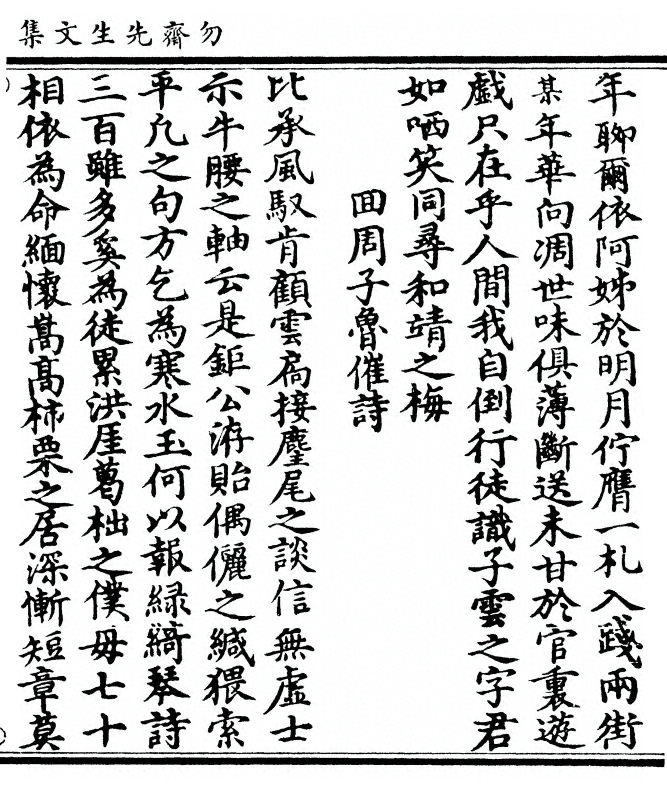 勿齋先生文集
年聊爾依阿姊於明月佇膺一札入踐兩街
某年華向凋世味俱薄斷送未甘於官裏遊
戲只在乎人間我自倒行徒識子雲之字君
如哂笑同尋和靖之梅
囬周子魯催詩
比承風馭肯顧雲扄接麈尾之談信無虛士
示牛腰之軸云是鉅公㳺貽偶儷之緘猥索
平凡之句方乞為寒水玉何以報綠綺琴詩
三百雖多奚為徒累洪厓葛柮之僕毋七十
相依為命緬懷嵩高柿栗之居深慚短章莫